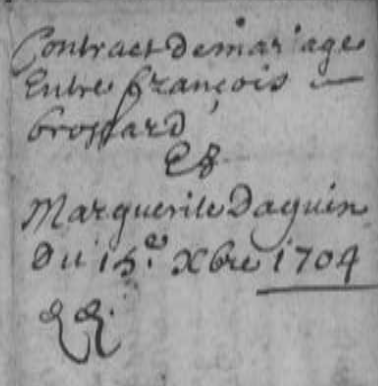 Contract de mariage
Entre françois
brossard
Et
Marguerite Daguin
Du 15.e Xbre 1704